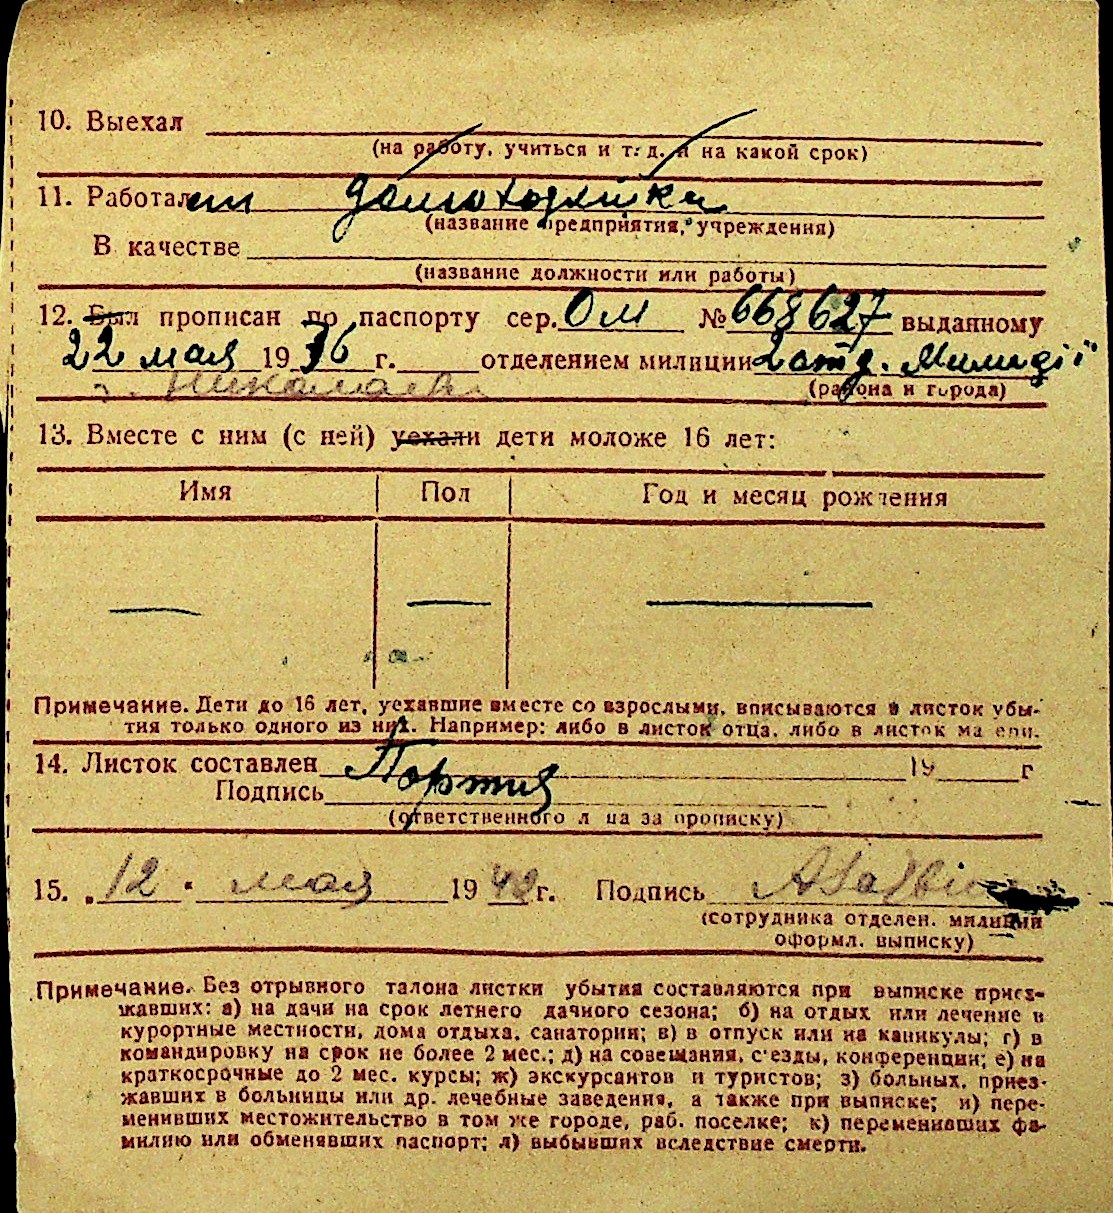 10. Выехал
(на работу, учиться и т. д. и на какой срок)
11. Работал
(название предприятия, учреждения)
В качестве
(название должности или работы)
12. Был прописан по паспорту сер. ОМ № 668627 выданному
22 мая 1936 г. отделением милиции 2 отд. Милиції
г. Николаев
(района и города)
13. Вместе с ним (с ней) уехали дети моложе 16 лет:
Имя Пол Год и месяц рождения
— — —
Примечание. Дети до 16 лет, уехавшие вместе со взрослыми, вписываются в листок убы-
тия только одного из них. Например: либо в листок отца, либо в листок матери.
14. Листок составлен 19 г
Подпись
(ответственного лица за прописку)
15. „12" мая 1942 г. Подпись
(сотрудника отделен. милиции
оформл. выписку)
Примечание. Без отрывного талона листки убытия составляются при выписке приез-
жавших: а) на дачи на срок летнего дачного сезона; б) на отдых или лечение в
курортные местности, дома отдыха, санатории; в) в отпуск или на каникулы; г) в
командировку на срок не более 2 мес.; д) на совещания, с'езды, конференции; е) на
краткосрочные до 2 мес. курсы; ж) экскурсантов и туристов; з) больных, приез-
жавших в больницы или др. лечебные заведения, а также при выписке; и) пере-
менивших местожительство в том же городе, раб. поселке; к) переменивших фа-
милию или обменявших паспорт; л) выбывших вследствие смерти.